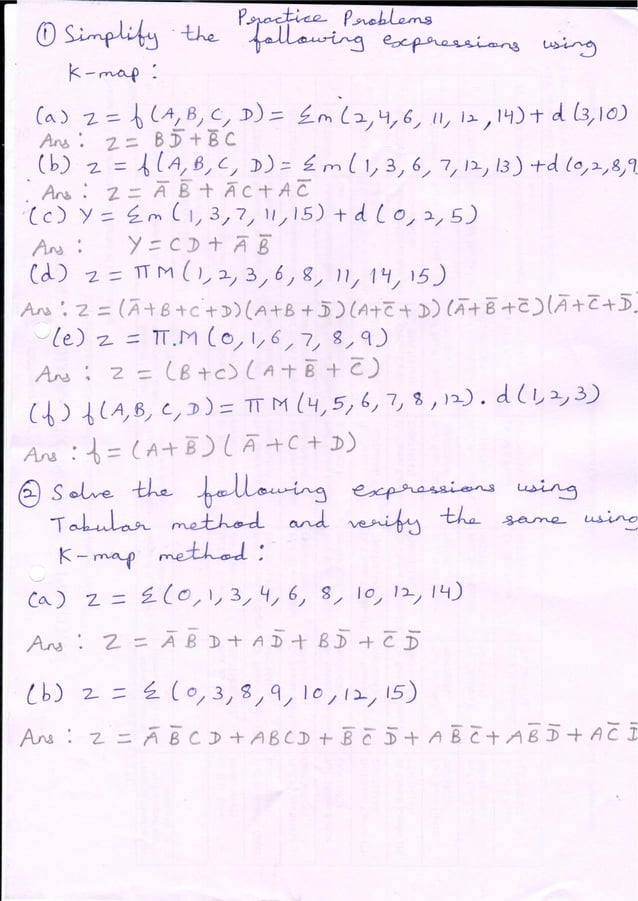 Practice Problems
① Simplify the following expressions using
K-map :
(a) z = f (A, B, C, D) = Σm (2,4,6, 11, 12, 14) + d (3,10)
Ans : z = BD̅ + B̅C
(b) z = f (A, B, C, D) = Σm (1, 3, 6, 7, 12, 13) + d (0,2,8,9
Ans : z = A̅ B̅ + A̅C + AC̅
(c) Y = Σm (1, 3, 7, 11, 15) + d (0, 2, 5)
Ans : Y = CD + A̅ B̅
(d) z = ΠM (1, 2, 3, 6, 8, 11, 14, 15)
Ans : z = (A̅+B+C+D)(A+B+D̅)(A+C̅+D)(A̅+B̅+C̅)(A̅+C̅+D̅
(e) z = Π.M (0, 1, 6, 7, 8, 9)
Ans : z = (B+C)(A+B̅+C̅)
(f) f(A, B, C, D) = ΠM (4, 5, 6, 7, 8, 12) . d (1, 2, 3)
Ans : f = (A+B̅)(A̅+C+D)
② Solve the following expressions using
Tabular method and verify the same using
K-map method :
(a) z = Σ(0, 1, 3, 4, 6, 8, 10, 12, 14)
Ans : Z = A̅ B̅ D + A D̅ + B D̅ + C̅ D̅
(b) z = Σ (0, 3, 8, 9, 10, 12, 15)
Ans : z = A̅ B̅ C D + ABCD + B̅ C̅ D̅ + A B̅ C̅ + A B̅ D̅ + A C̅ D̅